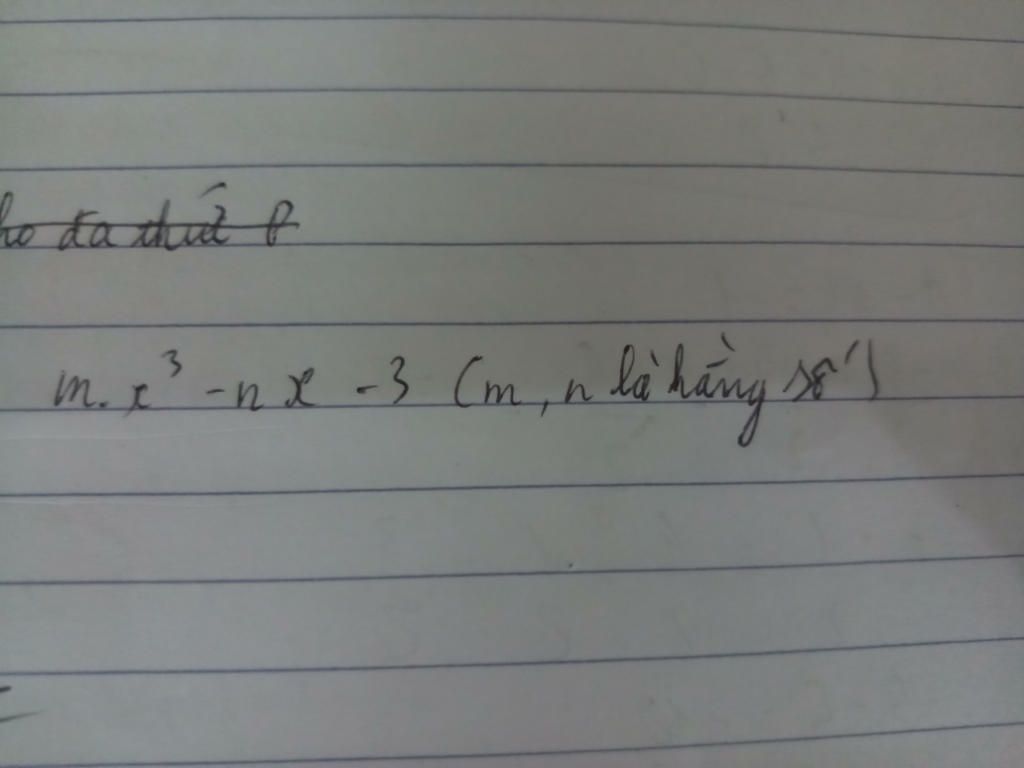 ho đa thức P
m. x³ - nx - 3 (m, n là hằng số)